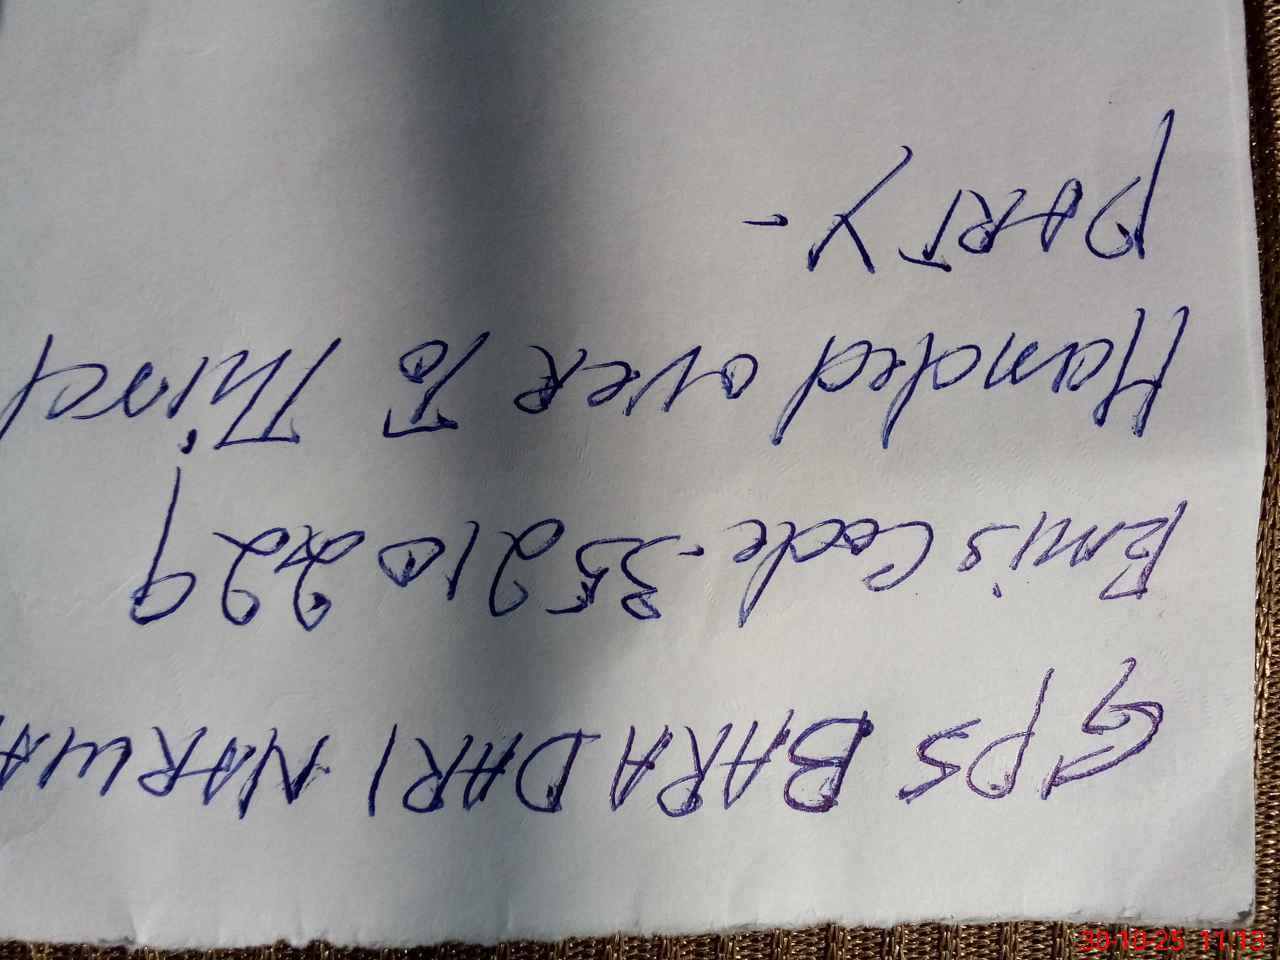 GPS BARA DARI NARWA
Emis Code-35210229
Handed over To Third
PARTY-
30-10-25 11:13